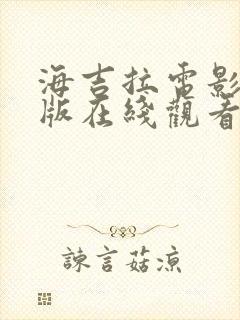 海吉拉電影
版在綫觀看
諫言菇凉